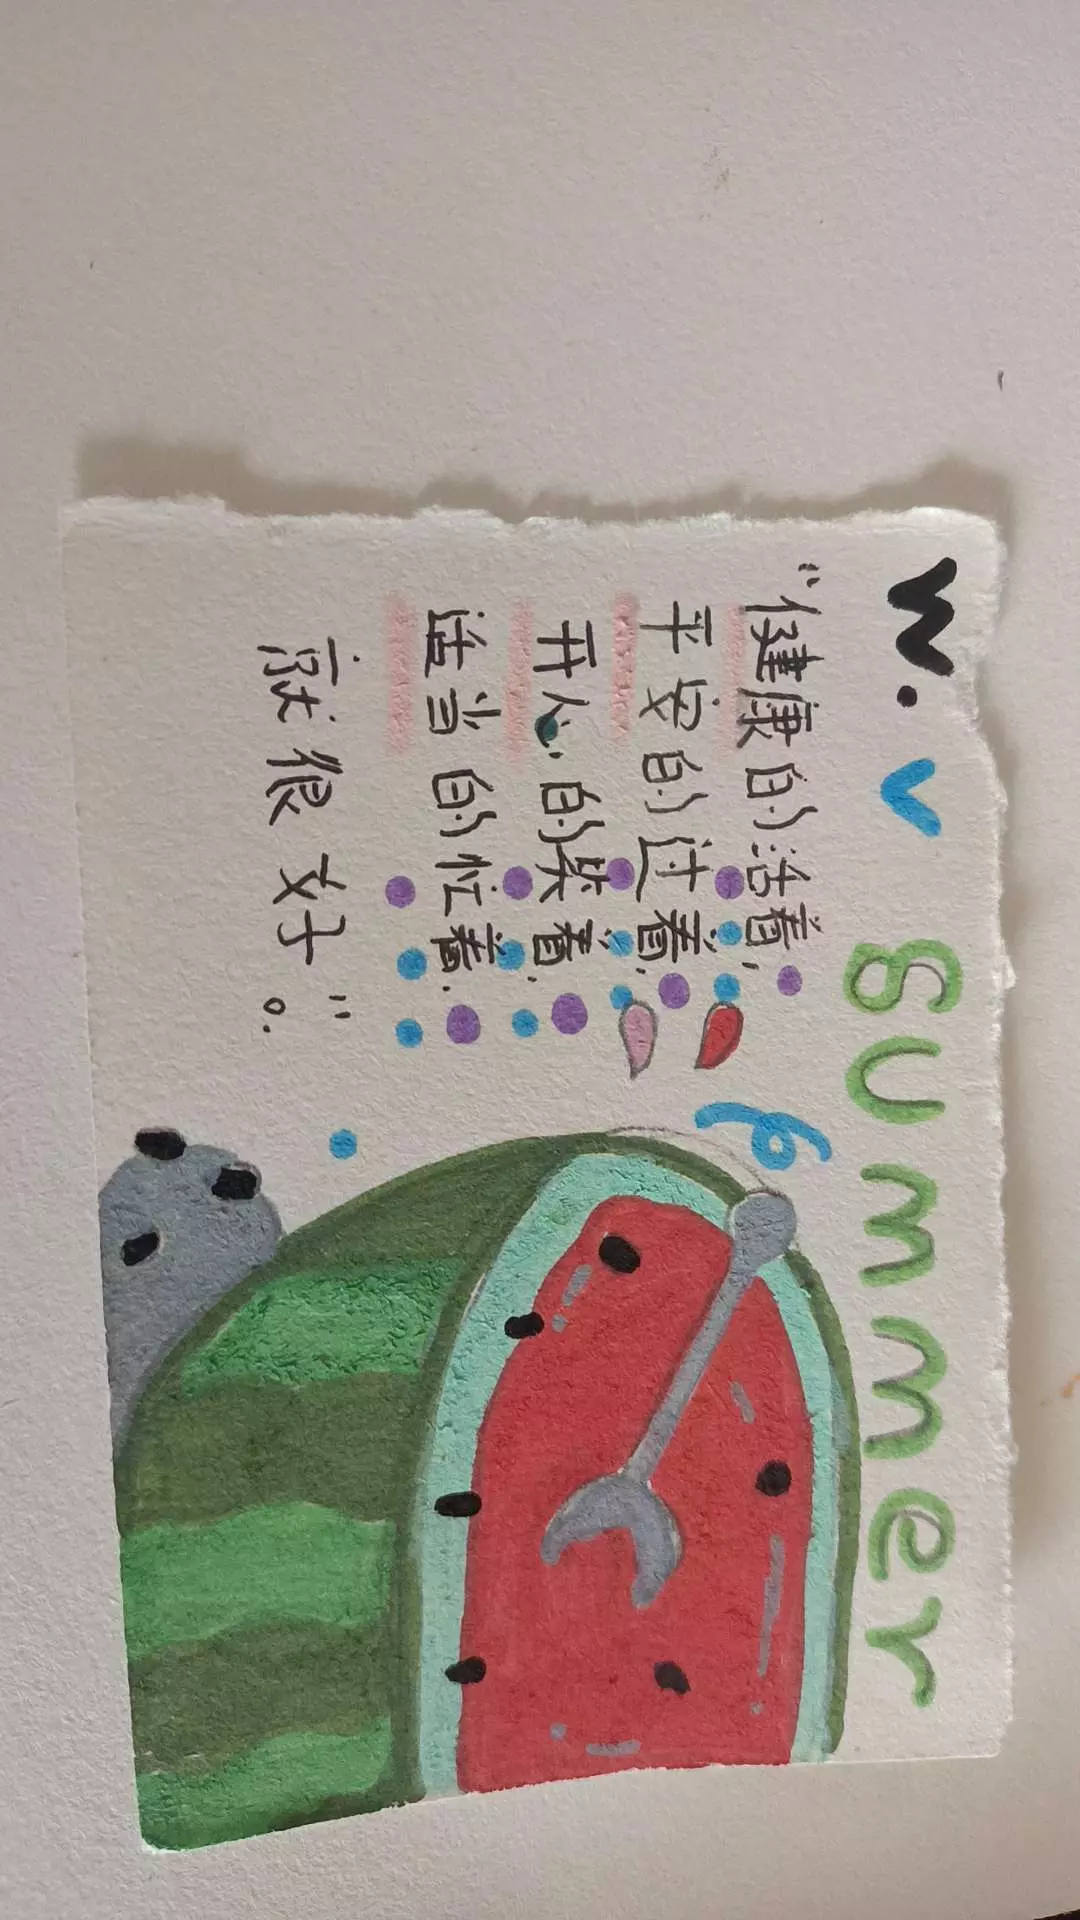 w.v summer
“健康的活着，
平安的过着，
开心的笑着，
适当的忙着，
就很好。”